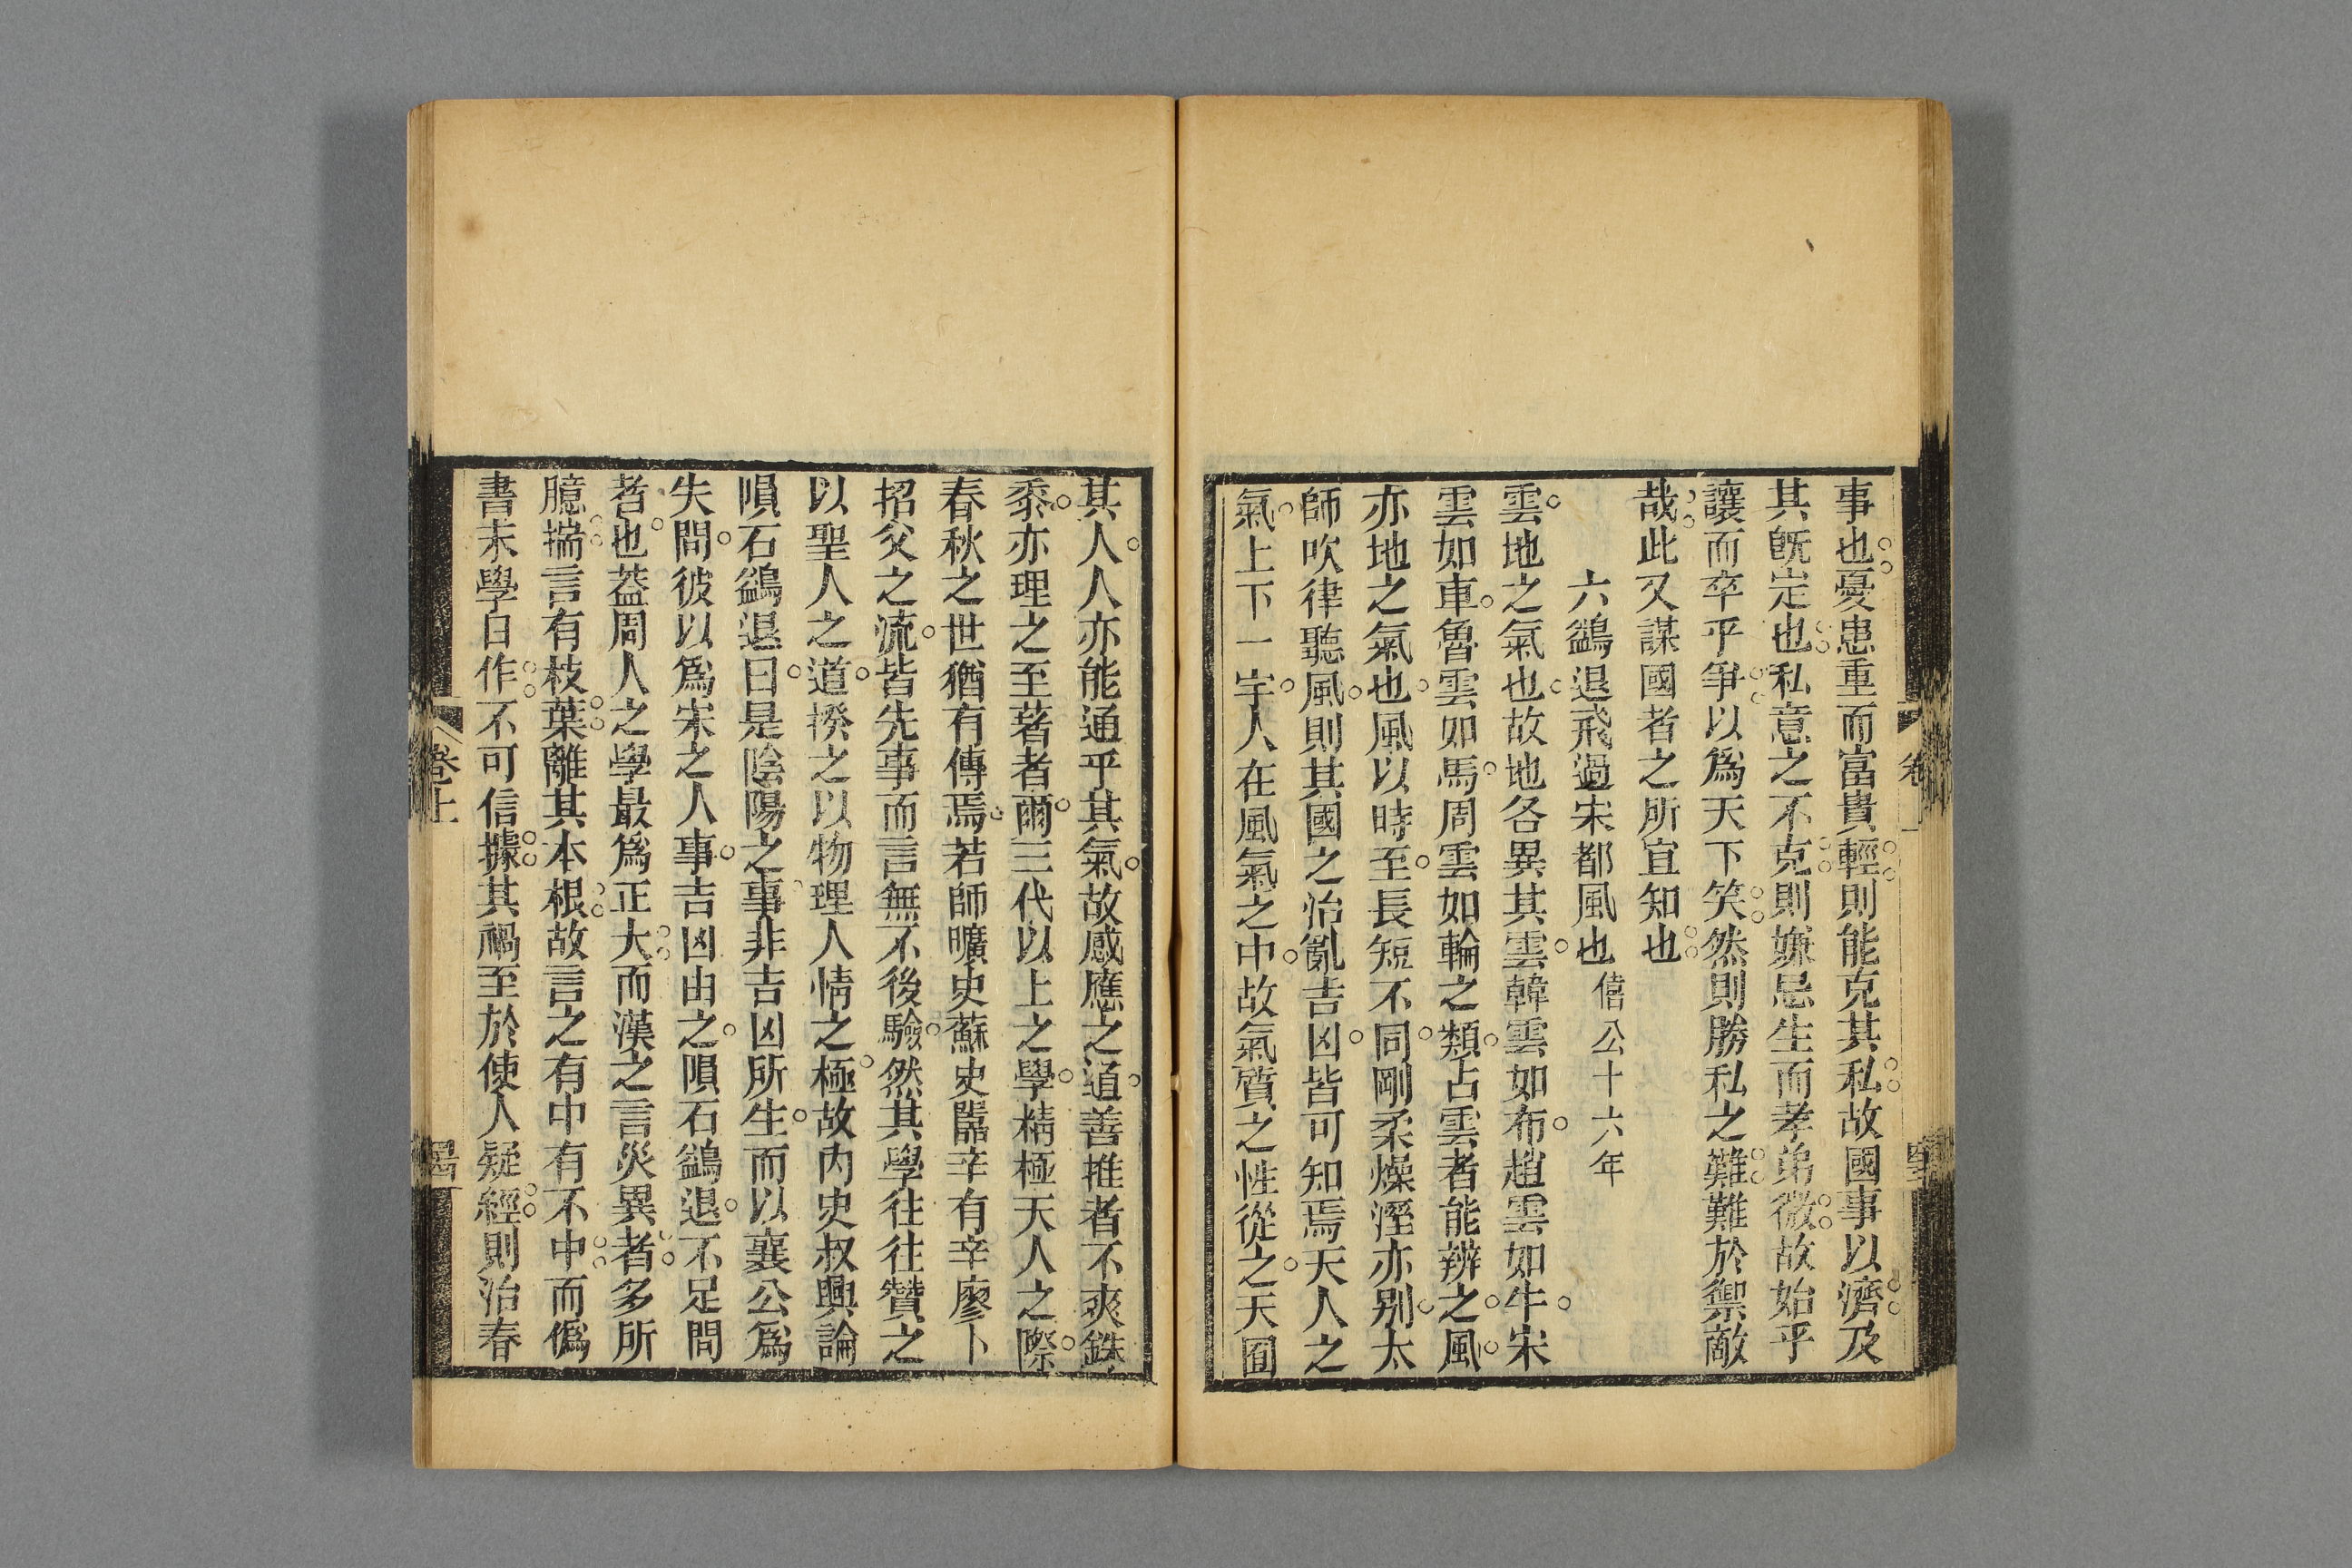 事也憂患重而富貴輕則能克其私故國事以濟及
其旣定也私意之不克則嫌忌生而孝弟微故始乎
讓而卒乎爭以爲天下笑然則勝私之難難於禦敵
哉此又謀國者之所宜知也
六鷁退飛過宋都風也 僖公十六年
雲地之氣也故地各異其雲韓雲如布趙雲如牛宋
雲如車魯雲如馬周雲如輪之類占雲者能辨之風
亦地之氣也風以時至長短不同剛柔燥溼亦别太
師吹律聽風則其國之治亂吉凶皆可知焉天人之
氣上下一宇人在風氣之中故氣質之性從之天囿
其人人亦能通乎其氣故感應之道善推者不爽銖
黍亦理之至著者爾三代以上之學精極天人之際
春秋之世猶有傳焉若師曠史蘇史嚚辛有辛廖卜
招父之流皆先事而言無不後驗然其學往往贊之
以聖人之道揆之以物理人情之極故内史叔興論
隕石鷁退曰是陰陽之事非吉凶所生而以襄公爲
失問彼以爲宋之人事吉凶由之隕石鷁退不足問
者也葢周人之學最爲正大而漢之言災異者多所
臆揣言有枝葉離其本根故言之有中有不中而僞
書未學白作不可信據其禍至於使人疑經則治春
卷上